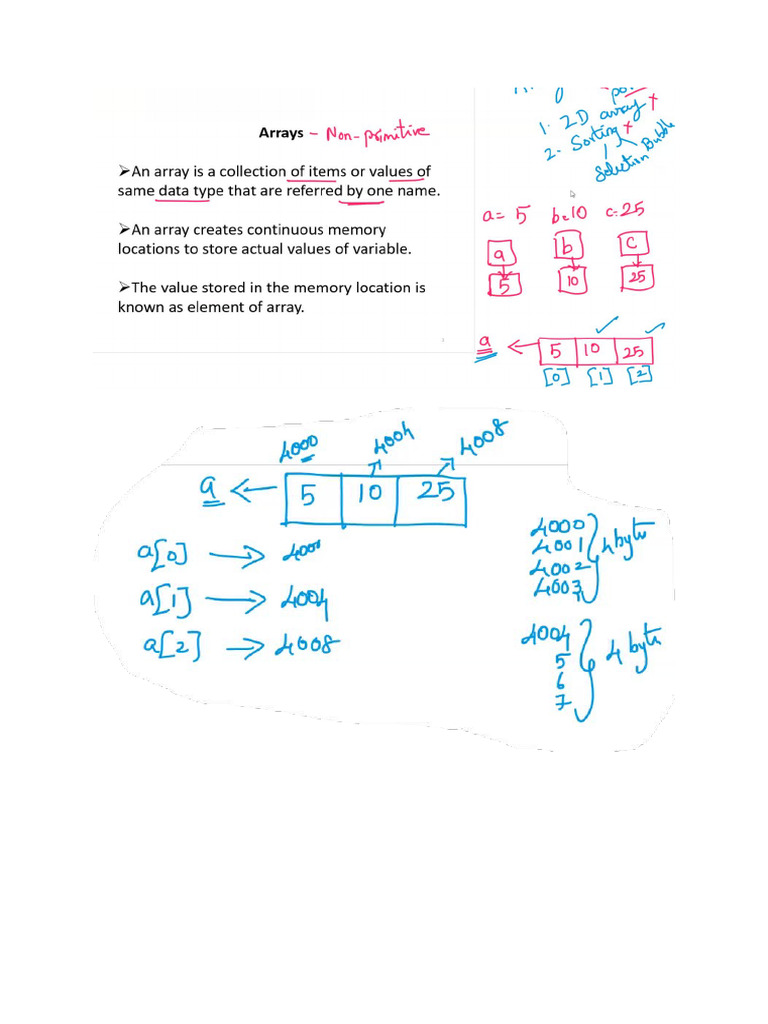 Arrays - Non-primitive
➢An array is a collection of items or values of
same data type that are referred by one name.
➢An array creates continuous memory
locations to store actual values of variable.
➢The value stored in the memory location is
known as element of array.
1. 2D array ×
2. Sorting ×
Selection Bubble
a= 5 b=10 c=25
a b c
5 10 25
a 5 10 25
[0] [1] [2]
4000 4004 4008
a 5 10 25
a[0] → 400
a[1] → 4004
a[2] → 4008
4000
4001
4002
4003
4 byte
4004
5
6
7
4 byte